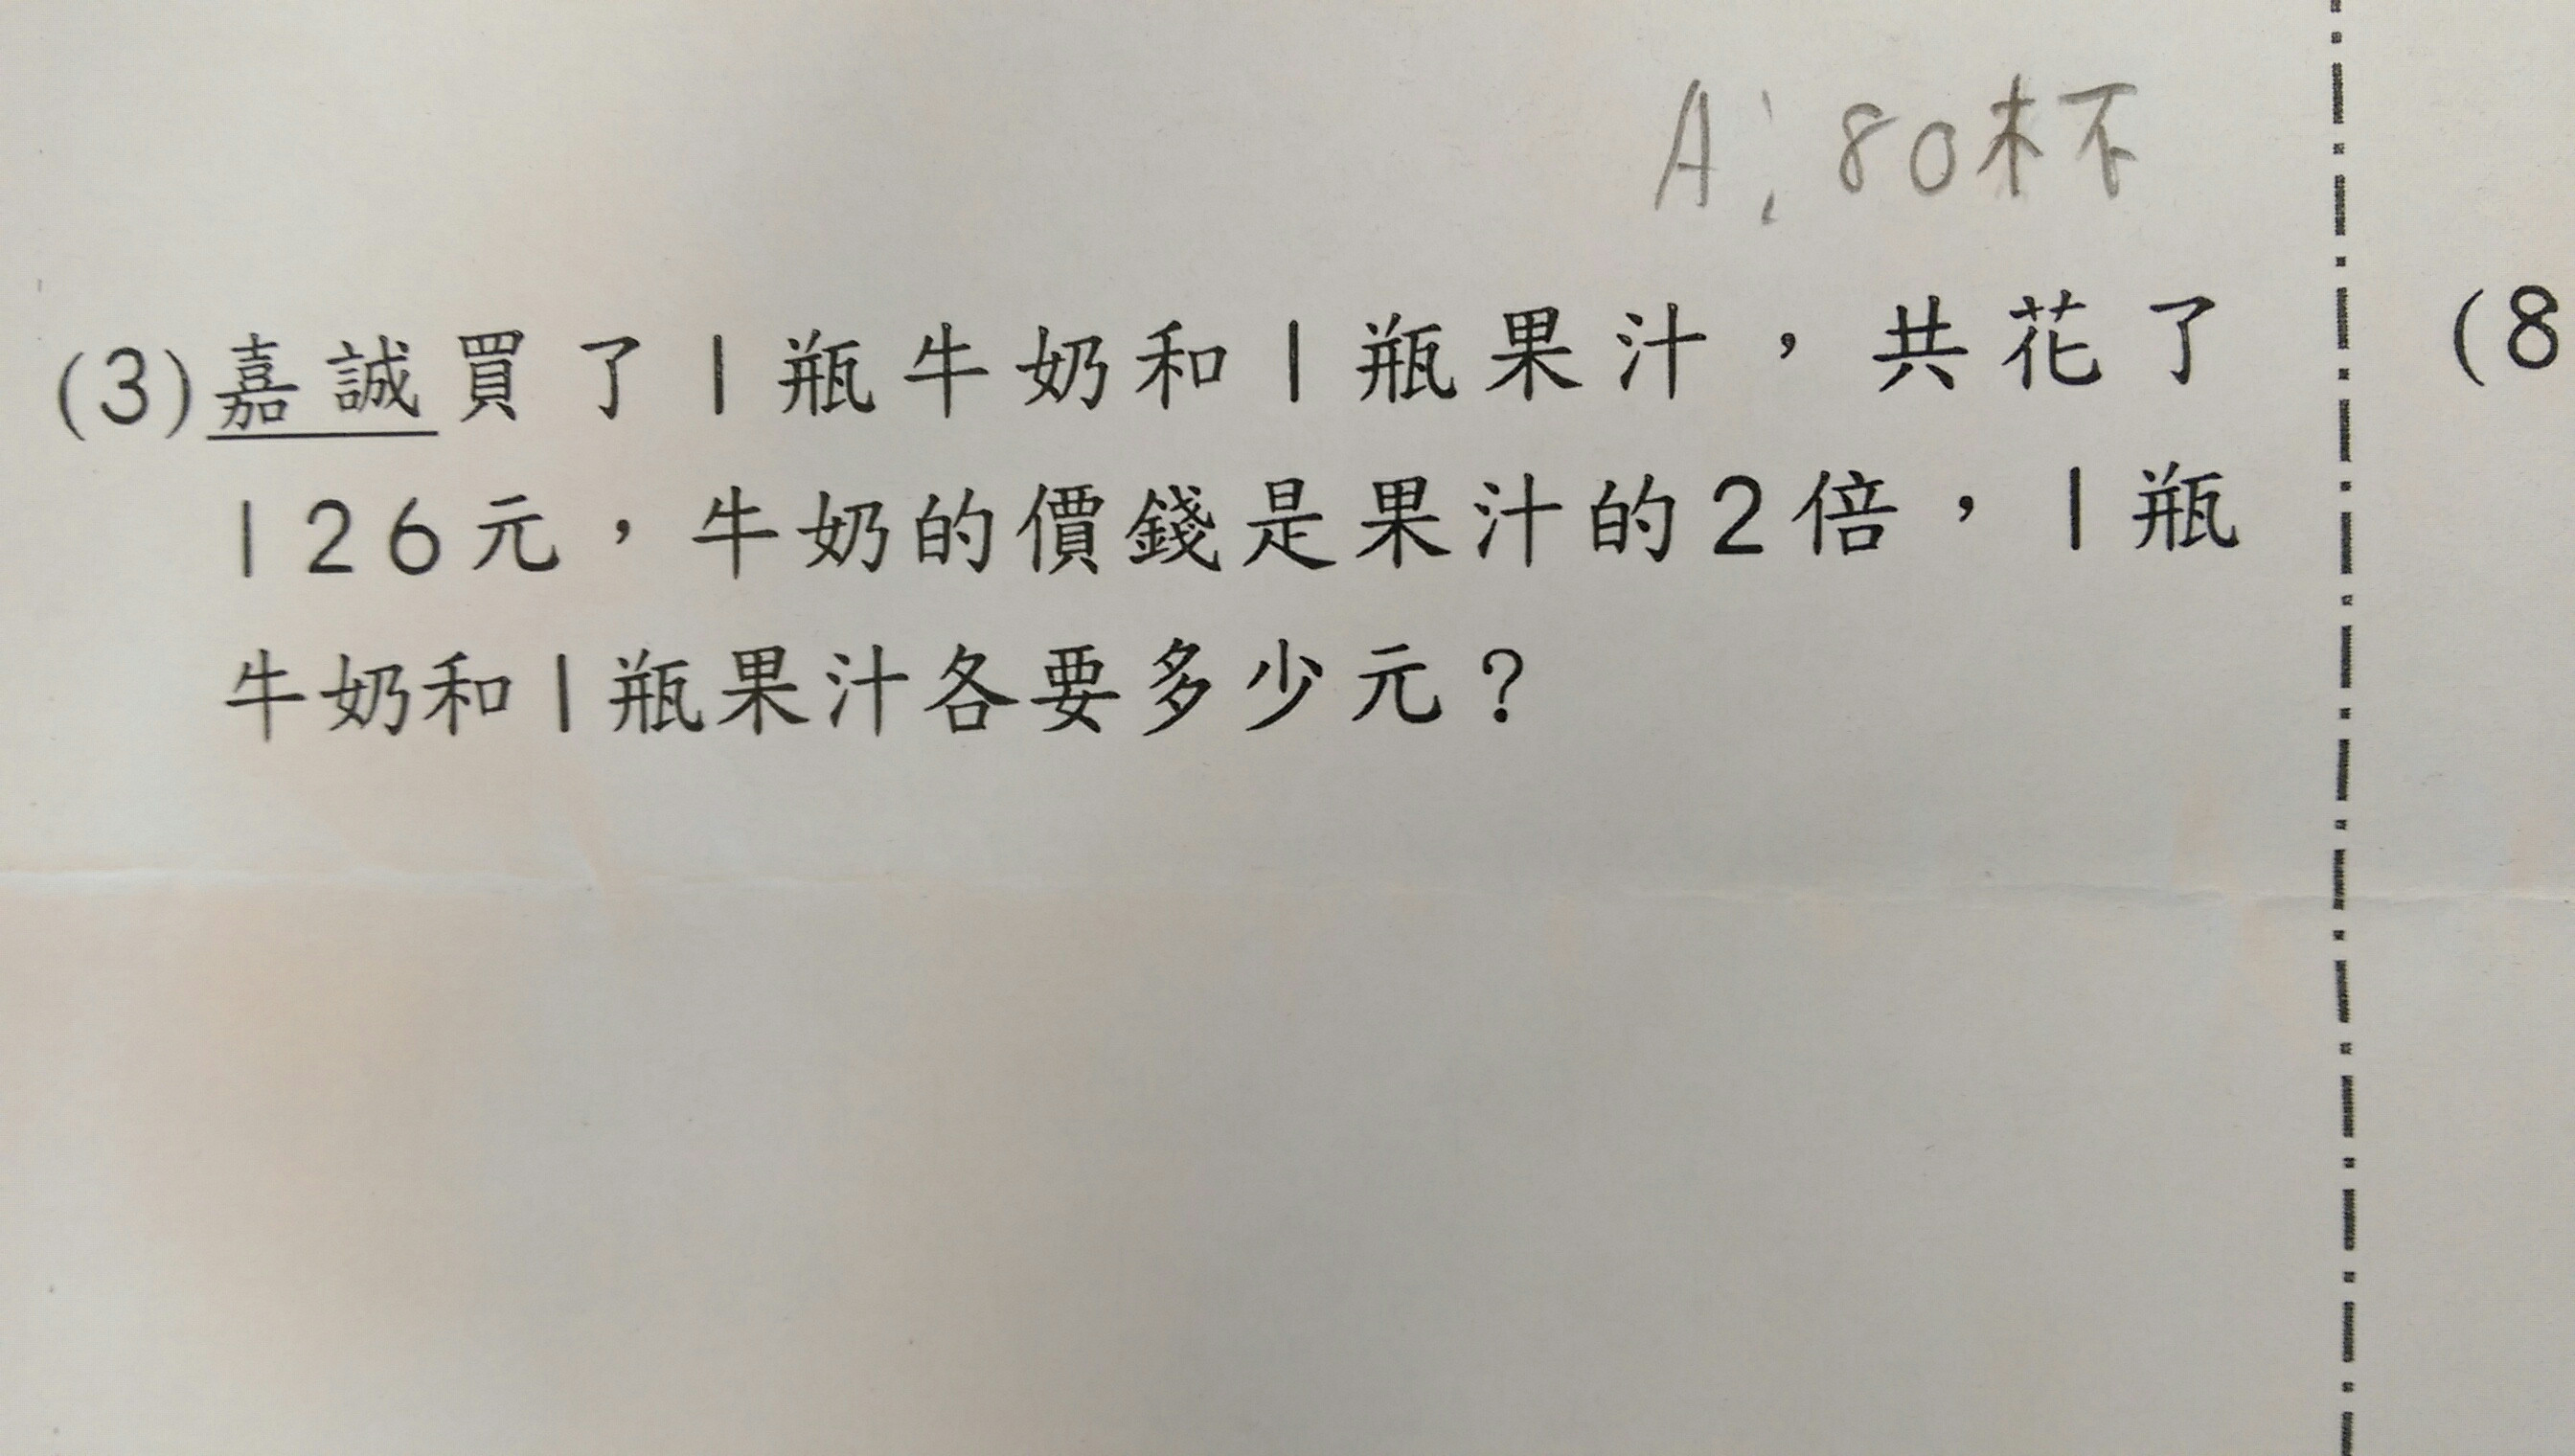 A:80杯
(3)嘉誠買了1瓶牛奶和1瓶果汁，共花了
126元，牛奶的價錢是果汁的2倍，1瓶
牛奶和1瓶果汁各要多少元？
(8